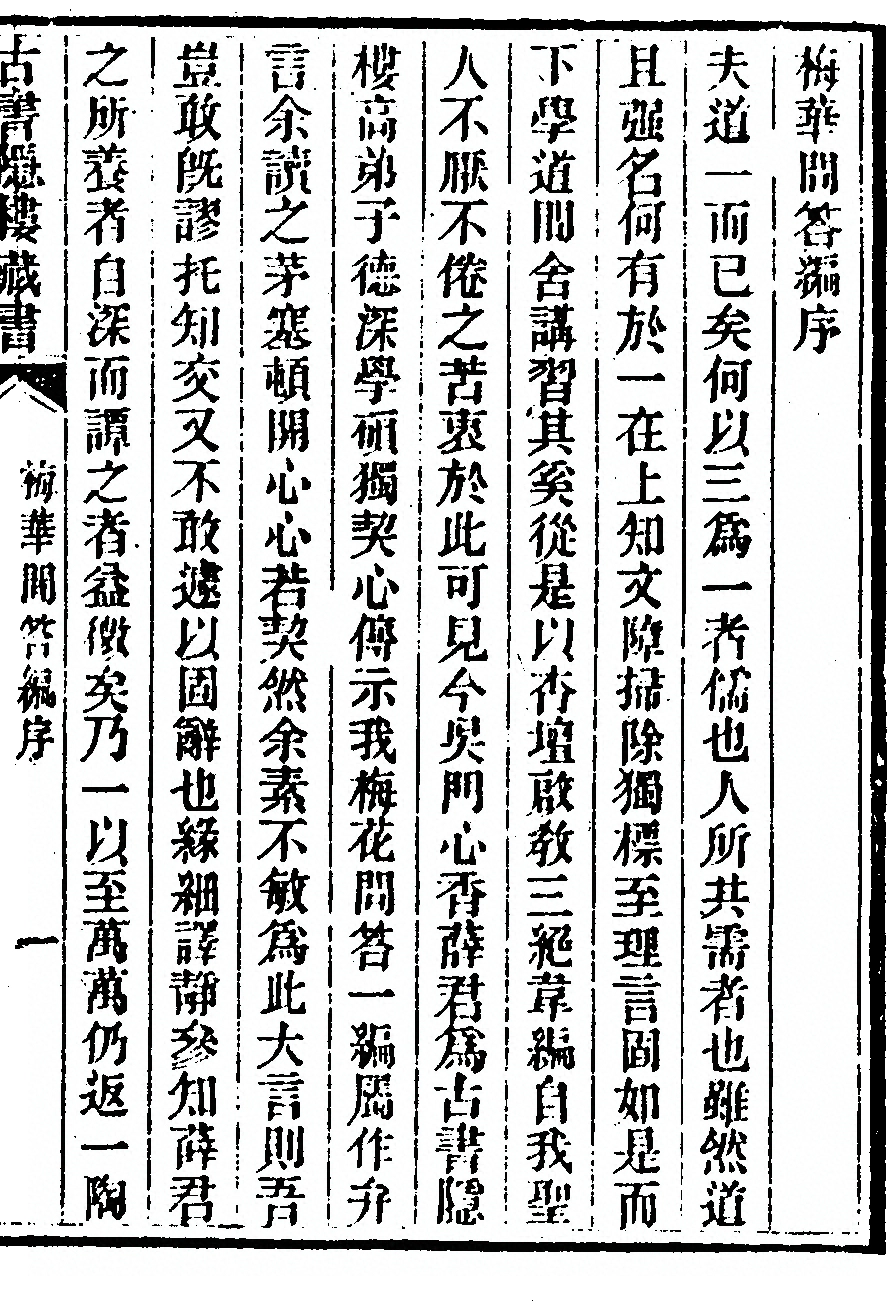 梅華問答編序
夫道一而已矣何以三爲一者儒也人所共需者也雖然道
且强名何有於一在上知文障掃除獨標至理言固如是而
下學道問舍講習其奚從是以杏壇啟教三絕韋編自我聖
人不厭不倦之苦衷於此可見今吳門心香薛君爲古書隱
樓高弟子德深學碩獨契心傳示我梅花問答一編屬作弁
言余讀之茅塞頓開心心若契然余素不敏爲此大言則吾
豈敢旣謬托知交又不敢遽以固辭也緣細譯靜參知薛君
之所養者自深而譚之者益微矣乃一以至萬萬仍返一陶
古書隱樓藏書
梅華問答編序
一